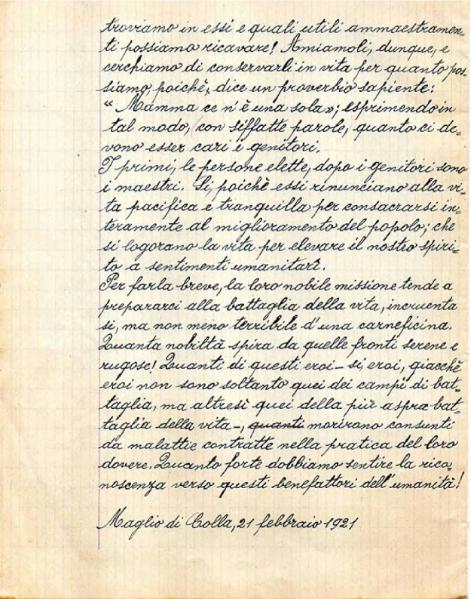 troviamo in essi e quali utili ammaestramen-
ti possiamo ricavare! Amiamoli, dunque, e
cerchiamo di conservarli in vita per quanto pos
siamo poichè, dice un proverbio sapiente:
“Mamma ce n'è una sola»; esprimendo in
tal modo, con siffatte parole, quanto ci de-
vono esser cari i genitori.
I primi, le persone elette, dopo i genitori sono
i maestri. Sì, poichè essi rinunciano alla vi-
ta pacifica e tranquilla per consacrarsi in-
teramente al miglioramento del popolo; che
si logorano la vita per elevare il nostro spiri-
to a sentimenti umanitarî.
Per farla breve, la loro nobile missione tende a
prepararci alla battaglia della vita, incruenta
sì, ma non meno terribile d'una carneficina.
Quanta nobiltà spira da quelle fronti serene e
rugose! Quanti di questi eroi- sì eroi, giacchè
eroi non sono soltanto quei dei campi di bat-
taglia, ma altresì quei della più aspra bat-
taglia della vita-, quanti morirono consunti
da malattie contratte nella pratica del loro
dovere. Quanto forte dobbiamo sentire la rico
noscenza verso questi benefattori dell'umanità!
Maglio di Colla, 21 febbraio 1921